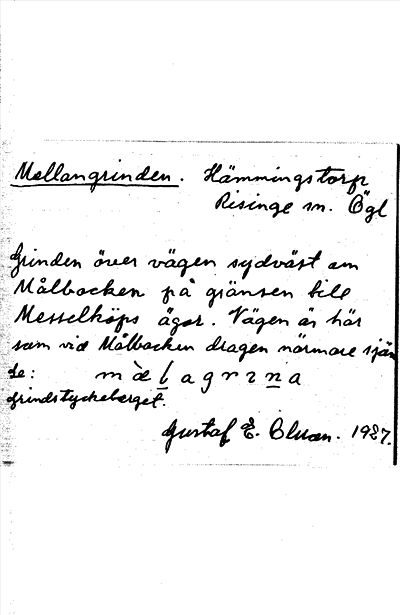 Mellangrinden. Hämmingstorp
Risinge sn. Ögl
Grinden över vägen sydväst om
Målbacken på gränsen till
Messelköps ägor. Vägen är här
som vid Målbacken dragen närmare sjön
de: mæ̀lagrina
Grindstyckeberget.
Gustaf E. Bluan. 1927.